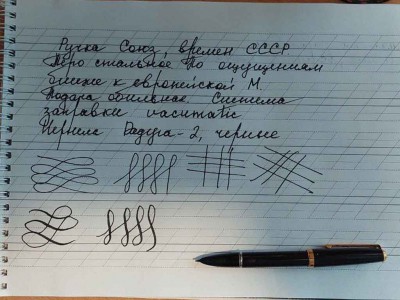 Ручка Союз, времен СССР
Перо стальное По ощущениям
ближе к европейской М.
Подача обильная. Система
заправки vacumatic
Чернила Радуга-2, черные